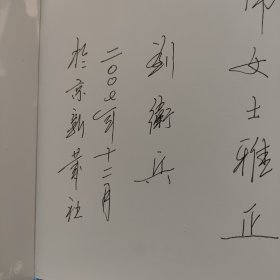 师女士雅正
刘卫兵
二〇〇七年十二月
於京新华社